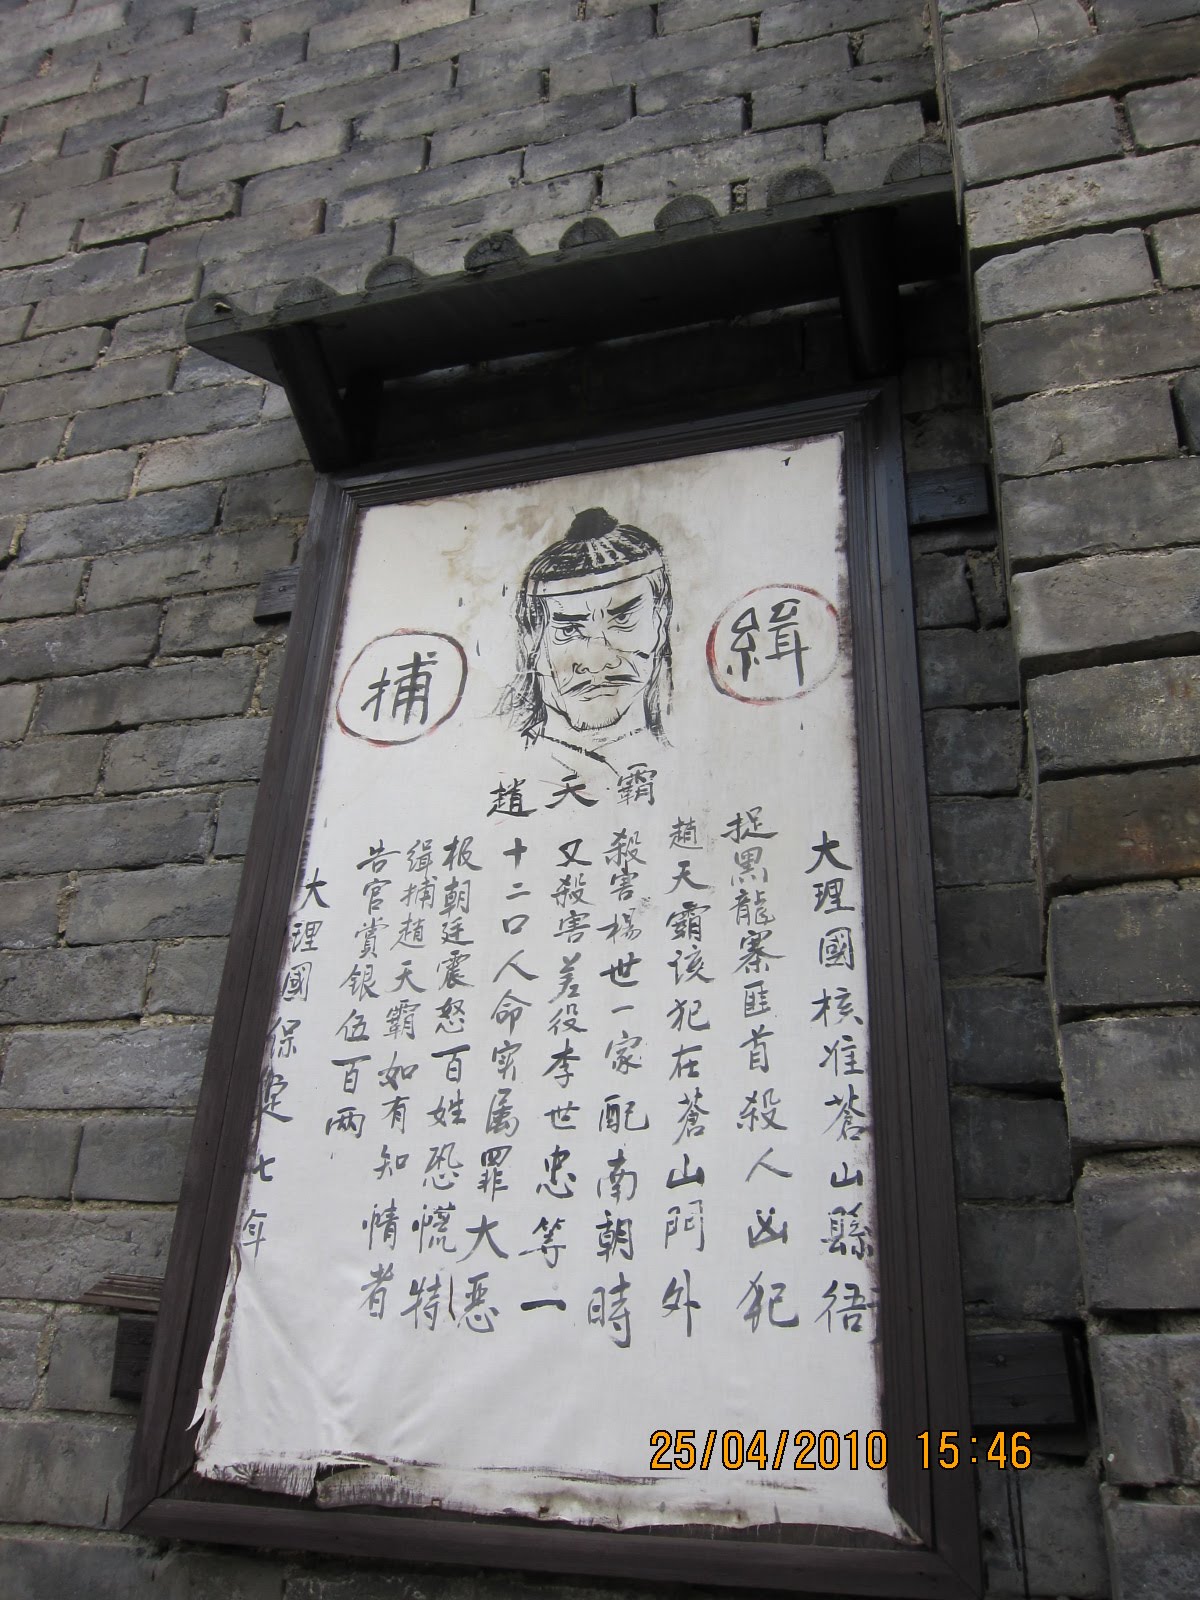 緝
捕
趙天霸
大理國核准蒼山縣
捉黑龍寨匪首殺人凶犯
趙天霸該犯在蒼山阿外
殺害楊世一家配南朝時
又殺害差役李世忠等一
十二口人命实属罪大恶
极朝廷震怒百姓恐慌特
缉捕趙天霸如有知情者
告官賞银伍百兩
大理國保定七年
25/04/2010 15:46